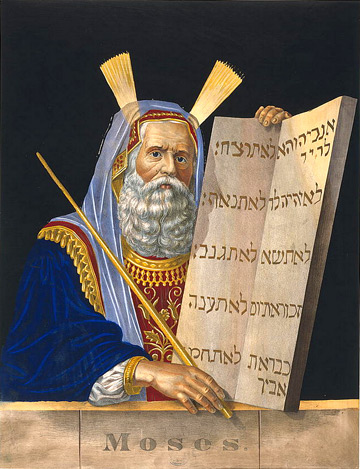 אנכי יהוה א
להיך
לא יהיה לך
לא תשא
זכור את יום
כבד את
אביך
לא תרצח:
לא תנאף:
לא תגנב:
לא תענה
לא תחמד
Moses.